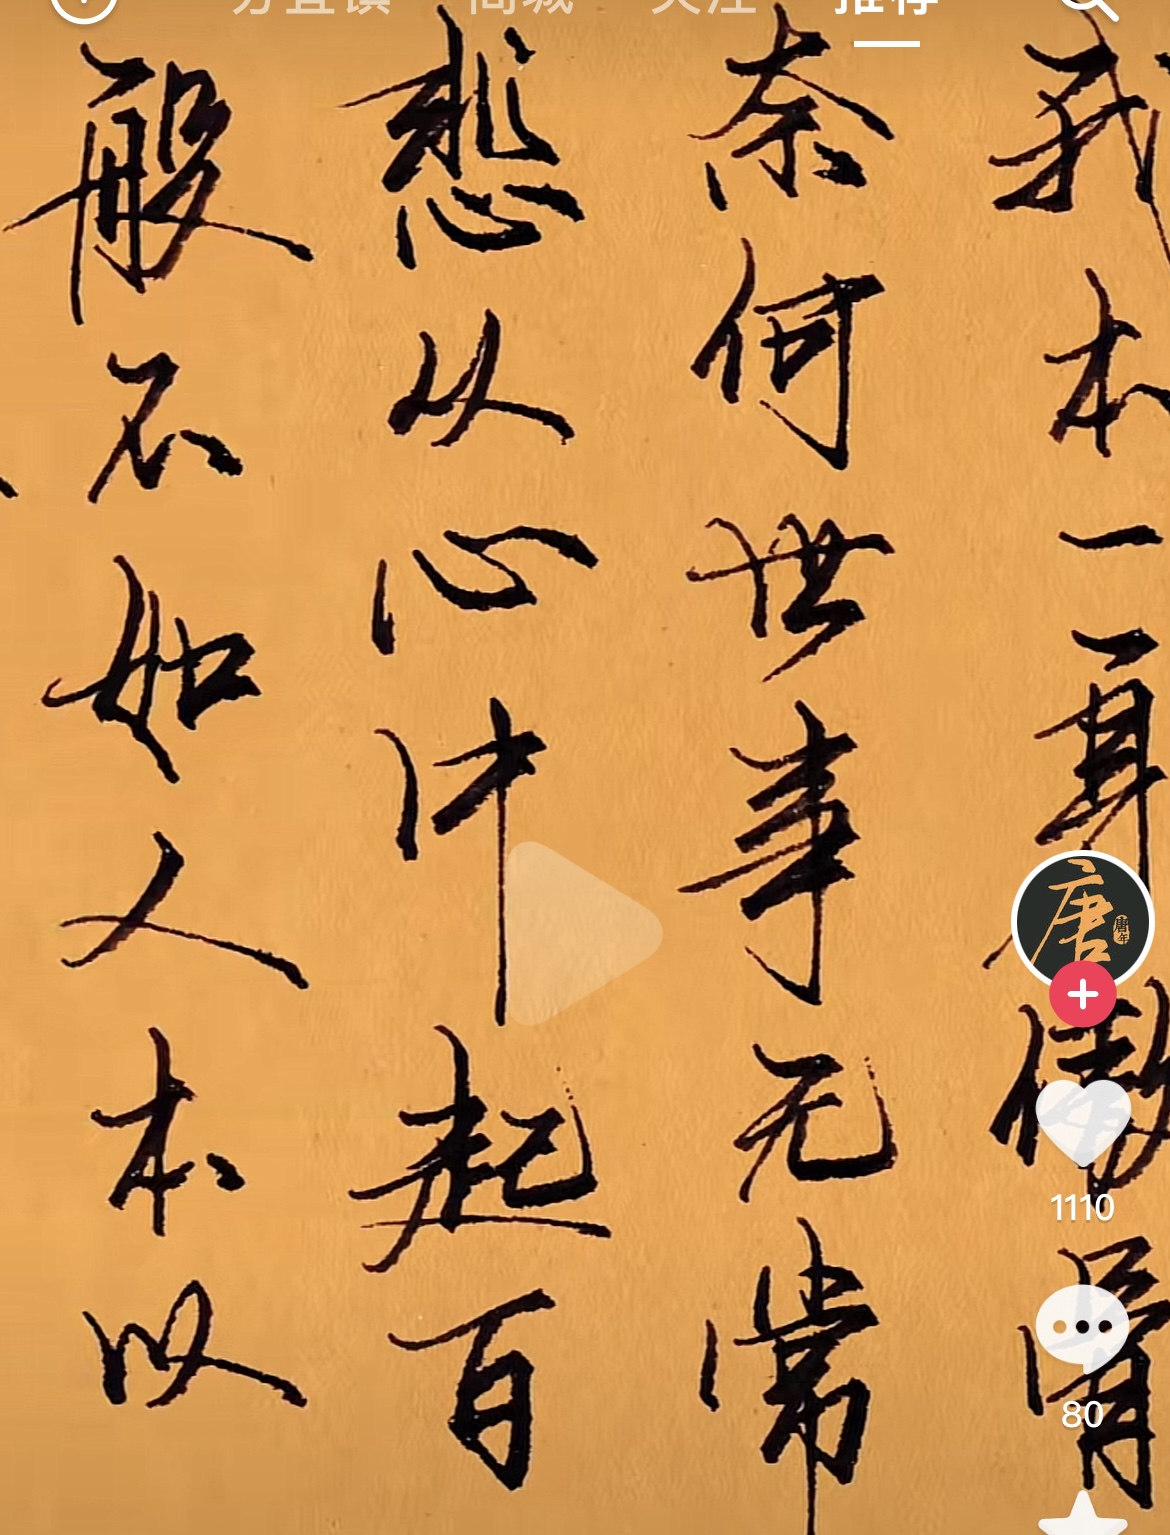 我本一身傲骨
奈何世事无常
悲从心中起百
般不如人本以
推荐
唐
1110
80